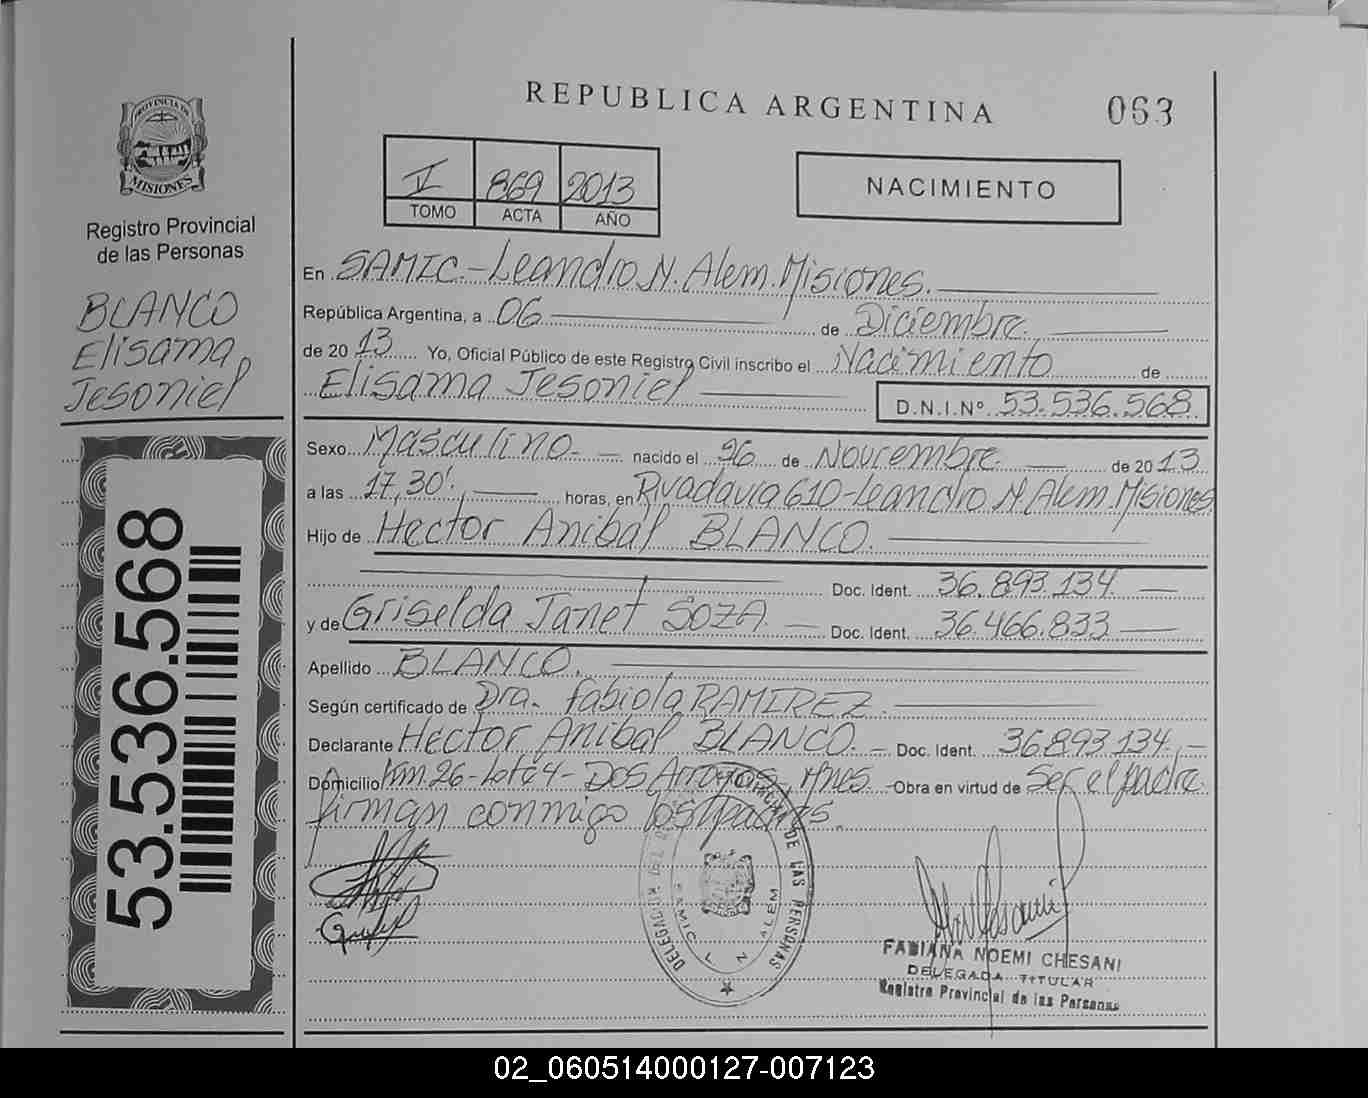 REPUBLICA ARGENTINA
063
PROVINCIA DE
MISIONES
Registro Provincial
de las Personas
BLANCO
Elisama
Jesoniel
53.536.568
869 2013
TOMO ACTA AÑO
NACIMIENTO
En SAMIC.-Leandro N. Alem. Misiones.
República Argentina, a 06 de Diciembre.
de 2013 Yo, Oficial Público de este Registro Civil inscribo el Nacimiento de
Elisama Jesoniel
D.N.I.Nº 53.536.568
Sexo Masculino.- nacido el 26 de Noviembre. de 2013
a las 17,30'. horas, en Rivadavia 610-Leandro N. Alem. Misiones
Hijo de Hector Anibal BLANCO.
Doc. Ident. 36.893.134.
y de Griselda Janet SOZA Doc. Ident. 36.466.833
Apellido BLANCO.
Según certificado de Dra. Fabiola RAMIREZ.
Declarante Hector Anibal BLANCO.- Doc. Ident. 36.893.134.-
Domicilio Km.26-Lote 4-Dos Arroyos, Mnes.- Obra en virtud de Ser el padre.
firman conmigo los padres.
DE LAS PERSONAS
SAMIC L N ALEM
FABIANA NOEMI CHESANI
DELEGADA TITULAR
Registro Provincial de las Personas
02_060514000127-007123